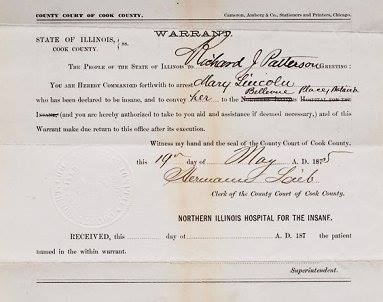 COUNTY COURT OF COOK COUNTY. Cameron, Amberg & Co., Stationers and Printers, Chicago.
WARRANT.
STATE OF ILLINOIS, } ss.
COOK COUNTY.
THE PEOPLE OF THE STATE OF ILLINOIS TO Richard J. Patterson GREETING:
YOU ARE HEREBY COMMANDED forthwith to arrest Mary Lincoln
who has been declared to be insane, and to convey her to the Bellevue Place, HOSPITAL FOR THE
INSANE (and you are hereby authorized to take you aid and assistance if deemed necessary,) and of this
Warrant make due return to this office after its execution.
Witness my hand and the seal of the County Court of Cook County,
this 19th day of May A. D. 1875
Hermann Lieb
Clerk of the County Court of Cook County.
NORTHERN ILLINOIS HOSPITAL FOR THE INSANE.
RECEIVED, this day of A. D. 187 the patient
named in the within warrant.
Superintendent.